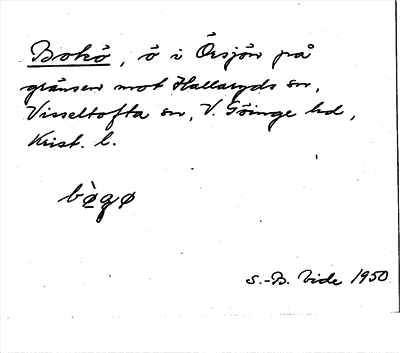 Bokö, ö i Örsjön på
gränsen mot Hallaryds sn,
Visseltofta sn, V. Göinge hd,
Krist. l.
S.-B. Vide 1950